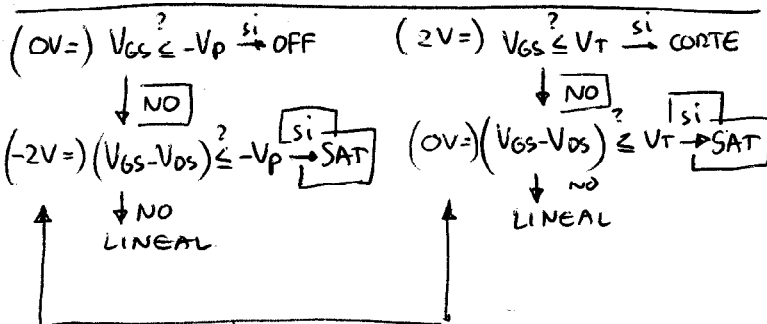 (0V=) V_GS ≤? -V_P si→ OFF
↓ NO
(-2V=) (V_GS-V_DS) ≤? -V_P si→ SAT
↓ NO
LINEAL
(2V=) V_GS ≤? V_T si→ CORTE
↓ NO
(0V=) (V_GS-V_DS) ≤? V_T si→ SAT
↓ NO
LINEAL